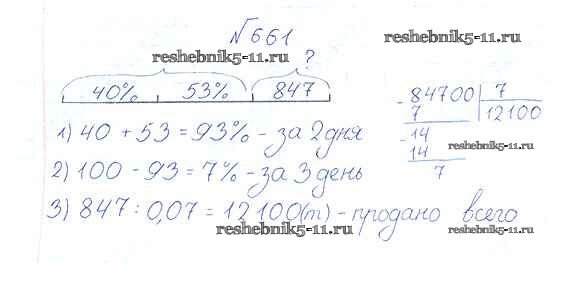 №661
reshebnik5-11.ru
reshebnik5-11.ru
?
40% 53% 847
1) 40 + 53 = 93% - за 2 дня
2) 100 - 93 = 7% - за 3 день
3) 847 : 0,07 = 12100(т) - продано всего
reshebnik5-11.ru
- 84700 7
7 12100
- 14
14
7
reshebnik5-11.ru
reshebnik5-11.ru